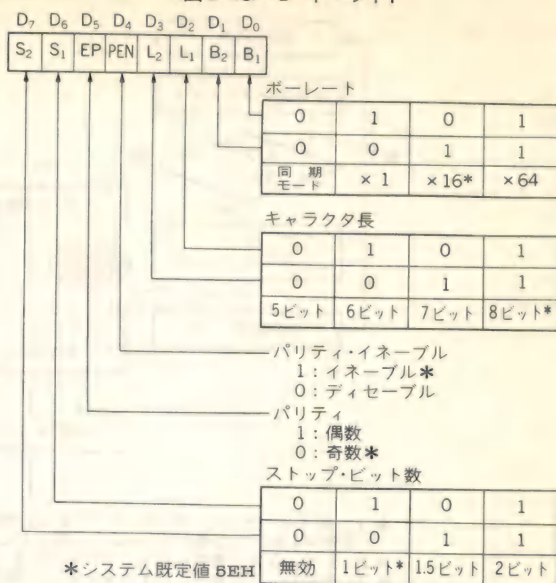 D₇ D₆ D₅ D₄ D₃ D₂ D₁ D₀
S₂ S₁ EP PEN L₂ L₁ B₂ B₁
ボーレート
0 1 0 1
0 0 1 1
同期モード ×1 ×16* ×64
キャラクタ長
0 1 0 1
0 0 1 1
5ビット 6ビット 7ビット 8ビット*
パリティ・イネーブル
1：イネーブル*
0：ディセーブル
パリティ
1：偶数
0：奇数*
ストップ・ビット数
0 1 0 1
0 0 1 1
無効 1ビット* 1.5ビット 2ビット
*システム既定値 5EH